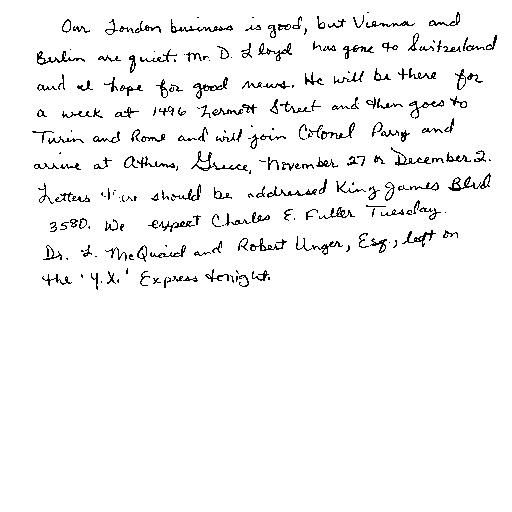 Our London business is good, but Vienna and
Berlin are quiet. Mr. D. Lloyd has gone to Switzerland
and I hope for good news. He will be there for
a week at 1496 Zermott Street and then goes to
Turin and Rome and will join Colonel Parry and
arrive at Athens, Greece, November 27 or December 2.
Letters there should be addressed King James Blvd
3580. We expect Charles E. Fuller Tuesday.
Dr. L. McQuaid and Robert Unger, Esq., left on
the 'Y.X.' Express tonight.